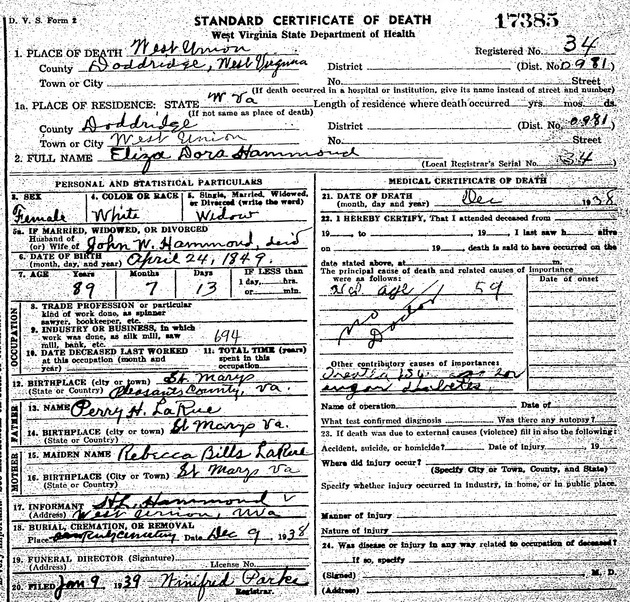 D. V. S. Form 2
STANDARD CERTIFICATE OF DEATH
17385
West Virginia State Department of Health
1. PLACE OF DEATH West Union Registered No. 34
County Doddridge, West Virginia District (Dist. No. 0981)
Town or City No. Street
(If death occurred in a hospital or institution, give its name instead of street and number)
1a. PLACE OF RESIDENCE: STATE W Va Length of residence where death occurred yrs. mos. ds.
(If not same as place of death)
County Doddridge District (Dist. No. 0981)
Town or City West Union No. Street
2. FULL NAME Eliza Dora Hammond (Local Registrar's Serial No. 34
PERSONAL AND STATISTICAL PARTICULARS
3. SEX 4. COLOR OR RACE 5. Single, Married, Widowed, or Divorced (write the word)
Female White Widow
5a. IF MARRIED, WIDOWED, OR DIVORCED
Husband of
(or) Wife of John W. Hammond,
6. DATE OF BIRTH
(month, day, and year) April 24, 1849.
7. AGE Years Months Days IF LESS than
89 7 13 1 day, hrs.
or min.
OCCUPATION
8. TRADE PROFESSION or particular
kind of work done, as spinner
sawyer, bookkeeper, etc.
9. INDUSTRY OR BUSINESS, in which
work was done, as silk mill, saw
mill, bank, etc. 694
10. DATE DECEASED LAST WORKED
at this occupation (month and
year)
11. TOTAL TIME (years)
spent in this
occupation
12. BIRTHPLACE (city or town) St. Marys
(State or Country) Pleasants County, Va.
FATHER
13. NAME Perry H. LaRue
14. BIRTHPLACE (city or town) St Marys Va
(State or Country)
MOTHER
15. MAIDEN NAME Rebecca Bills LaRue
16. BIRTHPLACE (City or Town) St Marys Va
(State or Country)
17. INFORMANT Hammond
(Address) West Union, WVa
18. BURIAL, CREMATION, OR REMOVAL
Place Date Dec 9, 1938
19. FUNERAL DIRECTOR (Signature)
(Address) License No.
20. FILED Jan 9 1939 Winifred Parke
Registrar.
MEDICAL CERTIFICATE OF DEATH
21. DATE OF DEATH
(month, day and year) Dec 1938
22. I HEREBY CERTIFY, That I attended deceased from
19 to 19 I last saw h alive
on 19 death is said to have occurred on the
date stated above, at m.
The principal cause of death and related causes of importance
were as follows: Date of onset
age 59
no Doctor
Other contributory causes of importance:
sugar diabetes.
Name of operation Date of
What test confirmed diagnosis Was there any autopsy?
23. If death was due to external causes (violence) fill in also the following:
Accident, suicide, or homicide? Date of Injury 19
Where did injury occur?
(Specify City or Town, County, and State)
Specify whether injury occurred in industry, in home, or in public place.
Manner of injury
Nature of Injury
24. Was disease or injury in any way related to occupation of deceased?
If so, specify
(Signed) M. D.
(Address)